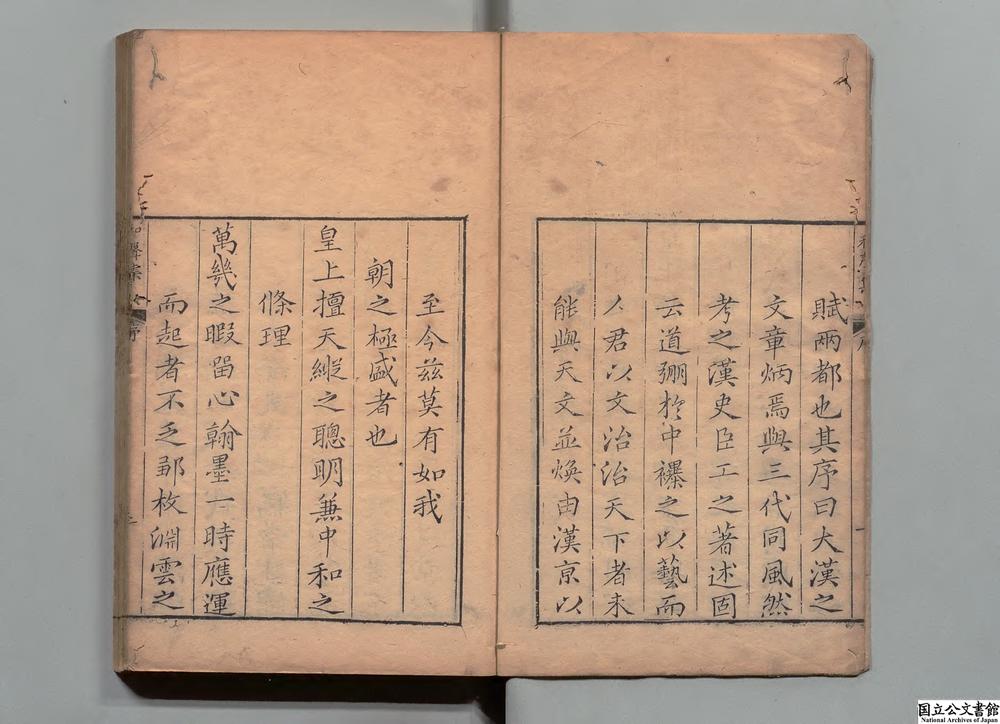 賦兩都也其序曰大漢之
文章炳焉與三代同風然
考之漢史臣工之著述固
云道弸於中襮之以藝而
人君以文治治天下者未
能與天文並煥由漢京以
至今茲莫有如我
朝之極盛者也
皇上擅天縱之聰明兼中和之
條理
萬幾之暇留心翰墨一時應運
而起者不乏鄒枚淵雲之
序
国立公文書館
National Archives of Japan